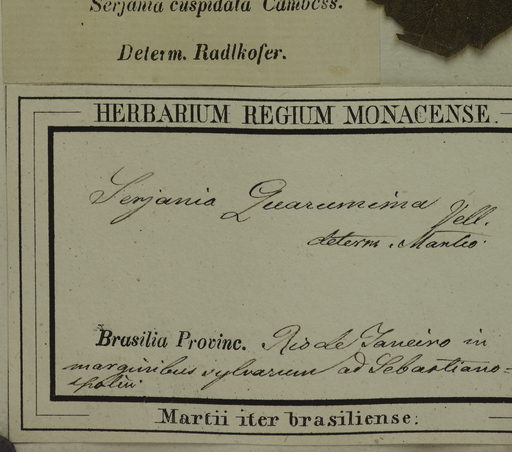 Serjania cuspidata Cambess.
Determ. Radlkofer.
HERBARIUM REGIUM MONACENSE.
Serjania Guarumima Vell.
determ. Martio.
Brasilia Provinc. Rio de Janeiro in
marginibus sylvarum ad Sebastiano=
polin.
Martii iter brasiliense.